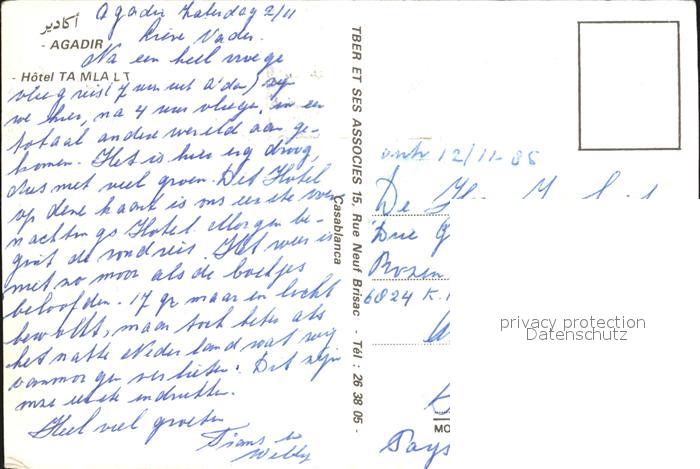 أكادير
- AGADIR
- Hôtel TAMLALT
Agadir Zaterdag 2/11
Lieve Vader.
Na een heel vroege
vliegreis (7 uur uit A'dam) zijn
we hier, na 4 uur vliegen, in een
totaal andere wereld aan ge-
komen. Het is hier erg droog,
dus met veel groen. Dit Hotel
op deze kaart is ons eerste over
nachtings Hotel Morgen be-
gint de rondreis. Het weer is
niet zo mooi als de boekjes
beloofden. 17 gr maar en licht
bewolkt, maar toch beter als
het natte Nederland wat wij
vanmorgen verlieten. Dit zijn
onze eerste indrukken.
Heel veel groeten
Frans en
Willy
TBER ET SES ASSOCIES 15, Rue Neuf Brisac - Tél : 26 38 05 -
Casablanca
ontv 12/11-85
De
Drie
Rozen
6824 K.
Pays
MO
privacy protection
Datenschutz